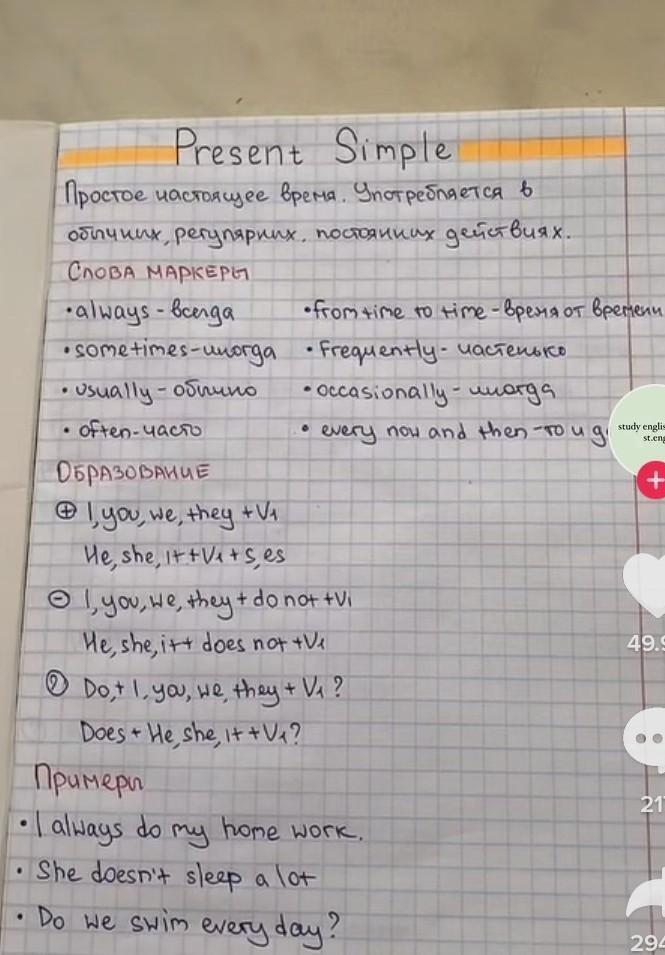 Present Simple
Простое настоящее время. Употребляется в
обычных, регулярных, постоянных действиях.
Слова маркеры
•always - всегда
•from time to time - время от времени
•sometimes - иногда
•frequently - частенько
•usually - обычно
•occasionally - иногда
•often - часто
•every now and then - то и
study englis
st.eng
Образование
+ I, you, we, they + V1
He, she, it + V1 + s, es
- I, you, we, they + do not + V1
He, she, it + does not + V1
? Do, + I, you, we, they + V1?
Does + He, she, it + V1?
49.9
217
Примеры
•I always do my home work.
•She doesn't sleep a lot
•Do we swim every day?
294